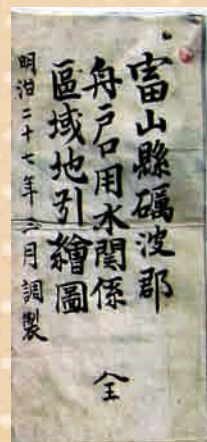 富山縣礪波郡
舟戸口用水関係
區域地引繪圖　全
明治二十七年三月調製